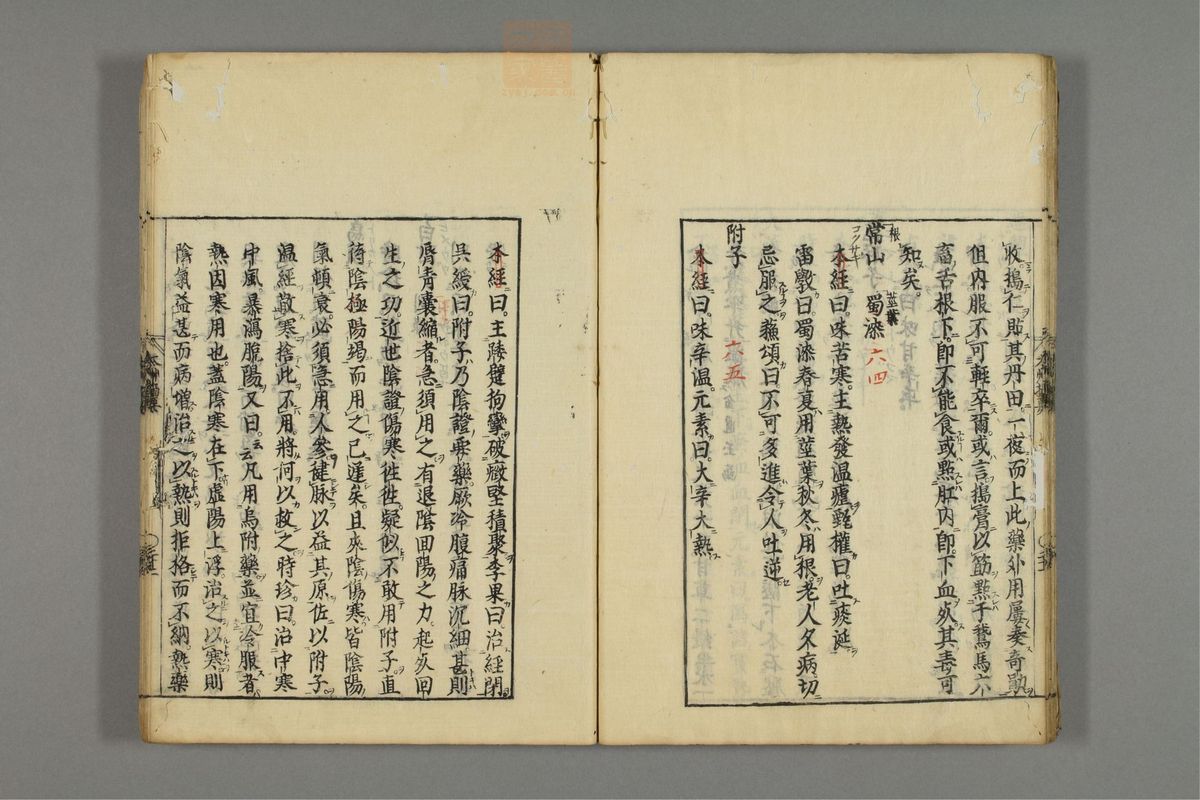 收搗仁貼其丹田一夜而上此藥外用屢奏奇勛
但内服不可輕卒爾或言搗膏以筋㸃于鵞馬六
畜舌根下即不能食或㸃肛内即下血死其毒可
知矣
根
常山
コクサギ
莖葉
蜀漆
六四
本經曰味苦寒主熱發温瘧甄權曰吐痰涎
雷斅曰蜀漆春夏用莖葉秋冬用根老人久病切
忌服之蘓頌曰不可多進令人吐逆
附子
六五
本經曰味辛温元素曰大辛大熱
本經曰主踒躄拘攣破癥堅積聚李果曰治經閉
呉綬曰附子乃陰證要藥厥冷腹痛脉沉細甚則
唇青囊縮者急須用之有退陰回陽之力起死回
生之功近世陰證傷寒徃徃疑似不敢用附子直
待陰極陽竭而用之已遲矣且夾陰傷寒皆陰陽
氣頓衰必須急用人參健脉以益其原佐以附子
温經散寒捨此不用將何以救之時珍曰治中寒
中風暴瀉脫陽又曰云云凡用烏附藥並宜冷服者
熱因寒用也蓋陰寒在下虚陽上浮治之以寒則
陰氣益甚而病増治之以熱則拒格而不納熱藥